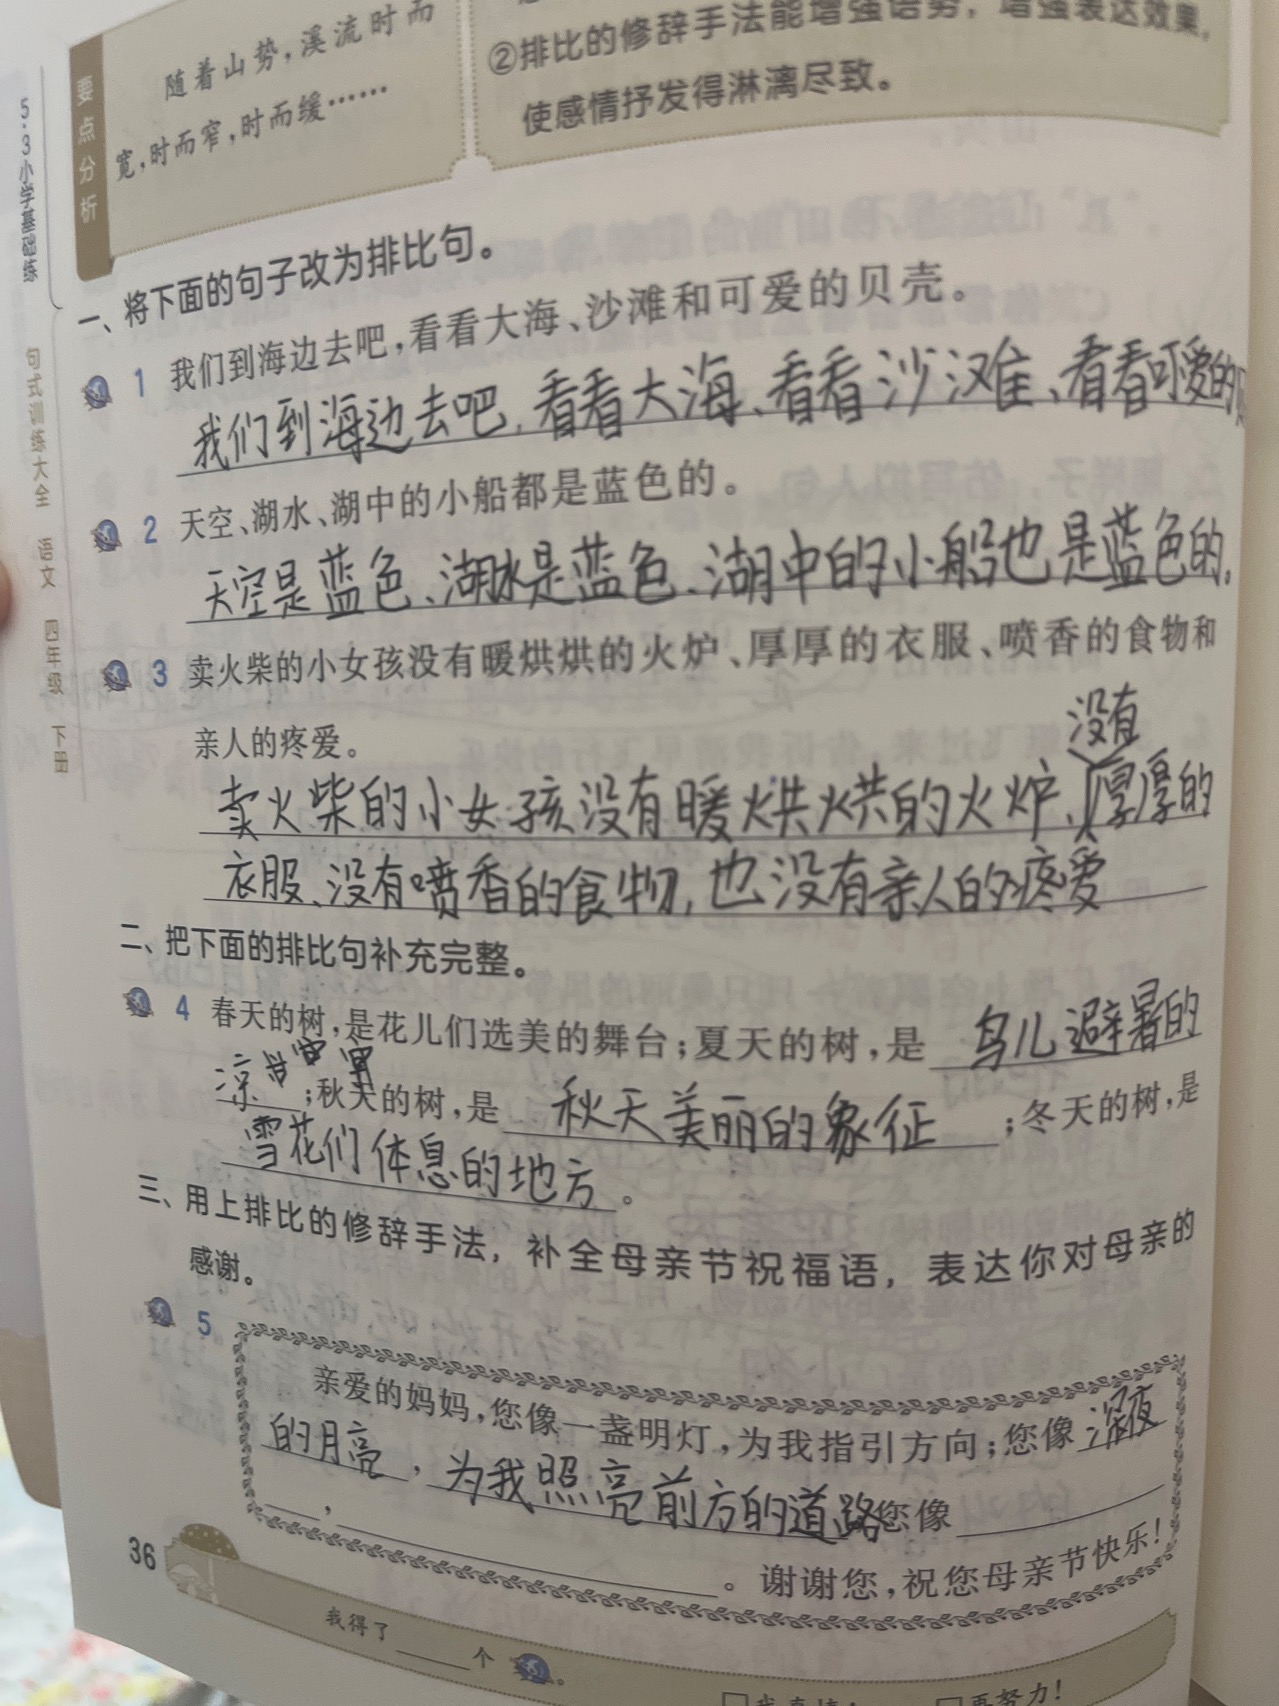 随着山势，溪流时而
宽，时而窄，时而缓……
要点分析
②排比的修辞手法能增强语势，增强表达效果，
使感情抒发得淋漓尽致。
5·3小学基础练
句式训练大全 语文 四年级 下册
一、将下面的句子改为排比句。
1 我们到海边去吧，看看大海、沙滩和可爱的贝壳。
我们到海边去吧，看看大海、看看沙滩、看看可爱的
2 天空、湖水、湖中的小船都是蓝色的。
天空是蓝色、湖水是蓝色、湖中的小船也是蓝色的。
3 卖火柴的小女孩没有暖烘烘的火炉、厚厚的衣服、喷香的食物和
亲人的疼爱。
没有
卖火柴的小女孩没有暖烘烘的火炉、厚厚的
衣服、没有喷香的食物，也没有亲人的疼爱
二、把下面的排比句补充完整。
4 春天的树，是花儿们选美的舞台；夏天的树，是 鸟儿避暑的
凉 ；秋天的树，是 秋天美丽的象征 ；冬天的树，是
雪花们休息的地方。
三、用上排比的修辞手法，补全母亲节祝福语，表达你对母亲的
感谢。
5
亲爱的妈妈，您像一盏明灯，为我指引方向；您像 深夜
的月亮，为我照亮前方的道路您像
，
。谢谢您，祝您母亲节快乐！
36
我得了 个 。
再努力！